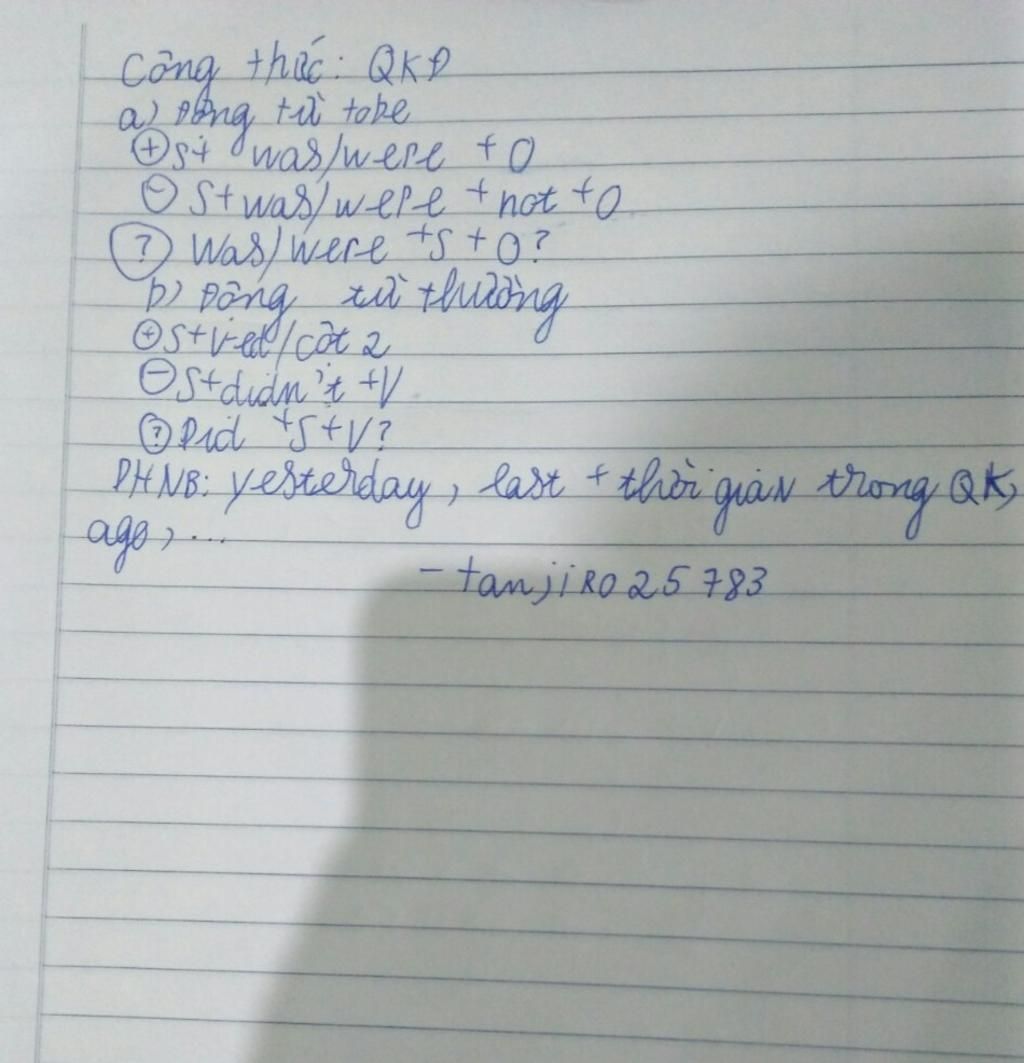 Công thức: QKĐ
a) Động từ tobe
(+) S+ was/were + O
(-) S+was/were + not + O
(?) Was/were + S + O?
b) Động từ thường
(+) S+V-ed/cột 2
(-) S+didn't + V
(?) Did + S + V?
DHNB: yesterday, last + thời gian trong QK,
ago, ...
- tanjiRO25783